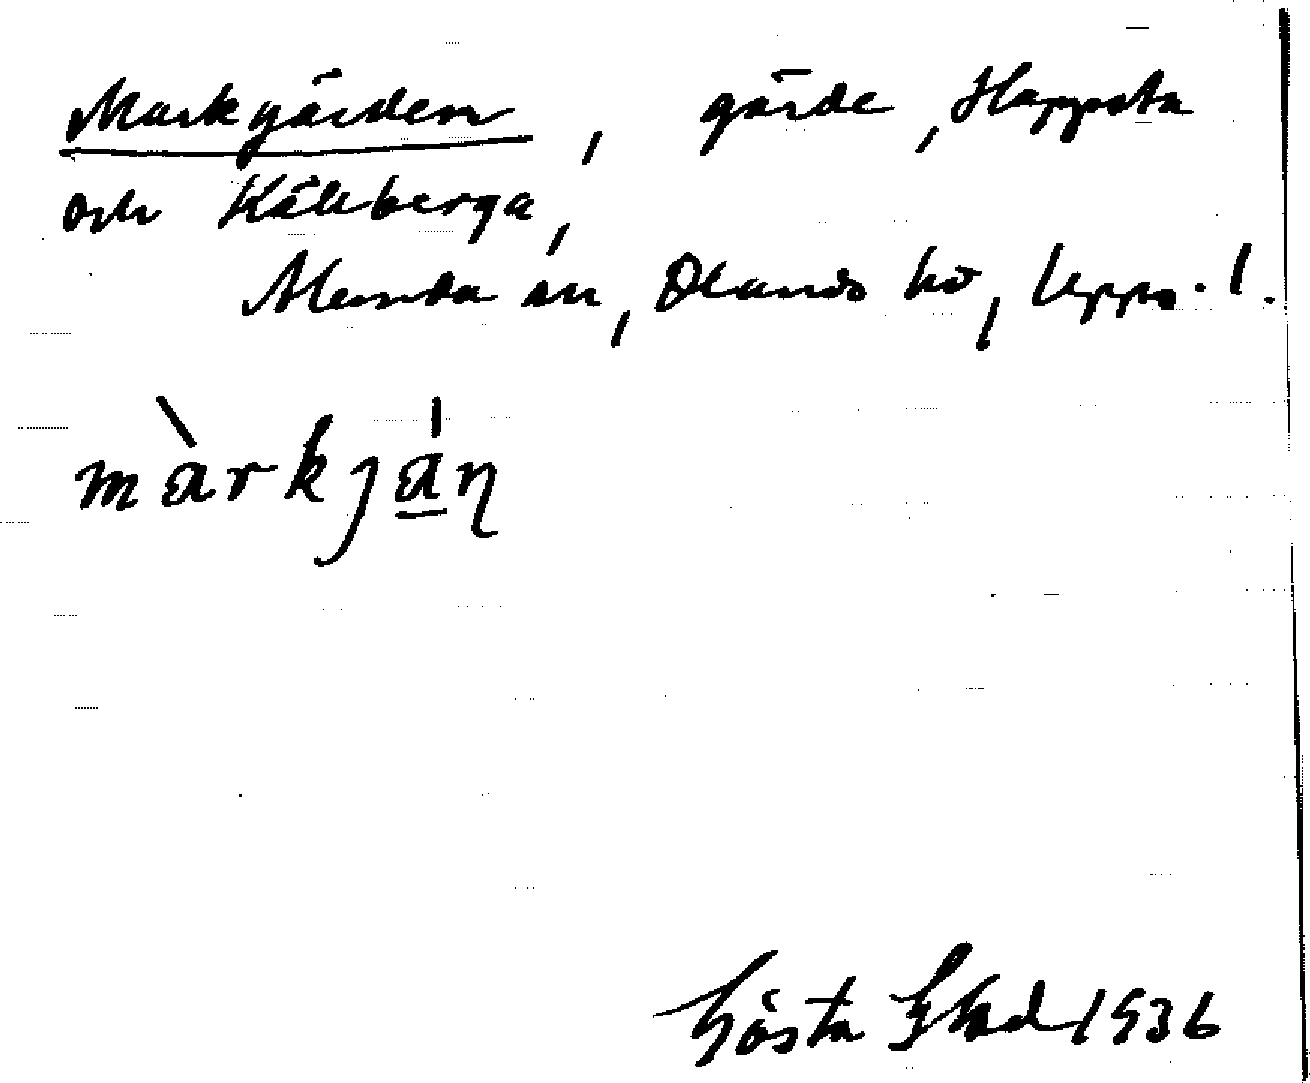 Markgärden, gärde, Häppsta
och Källberga,
Alunda sn, Olands hd, Upps. l.
màrkján
Gösta Ekad 1936